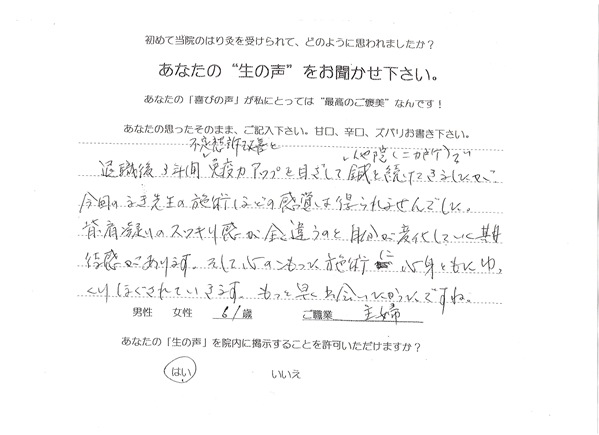 初めて当院のはり灸を受けられて、どのように思われましたか？
あなたの“生の声”をお聞かせ下さい。
あなたの「喜びの声」が私にとっては“最高のご褒美”なんです！
あなたの思ったそのまま、ご記入下さい。甘口、辛口、ズバリお書き下さい。
不定愁訴改善と
他院（二カ所）で
退職後3年間免疫力アップを目ざして鍼を続けてきましたが、
今回のよき先生の施術ほどの感激は得られませんでした。
首肩凝りのスッキリ感が全く違うのと自分が変化していく期
待感があります。そして心のこもった施術に心身ともにゆっ
くりほぐされていきます。もっと早く出会いたかったですね。
男性 女性 61歳 ご職業 主婦
あなたの「生の声」を院内に掲示することを許可いただけますか？
はい いいえ